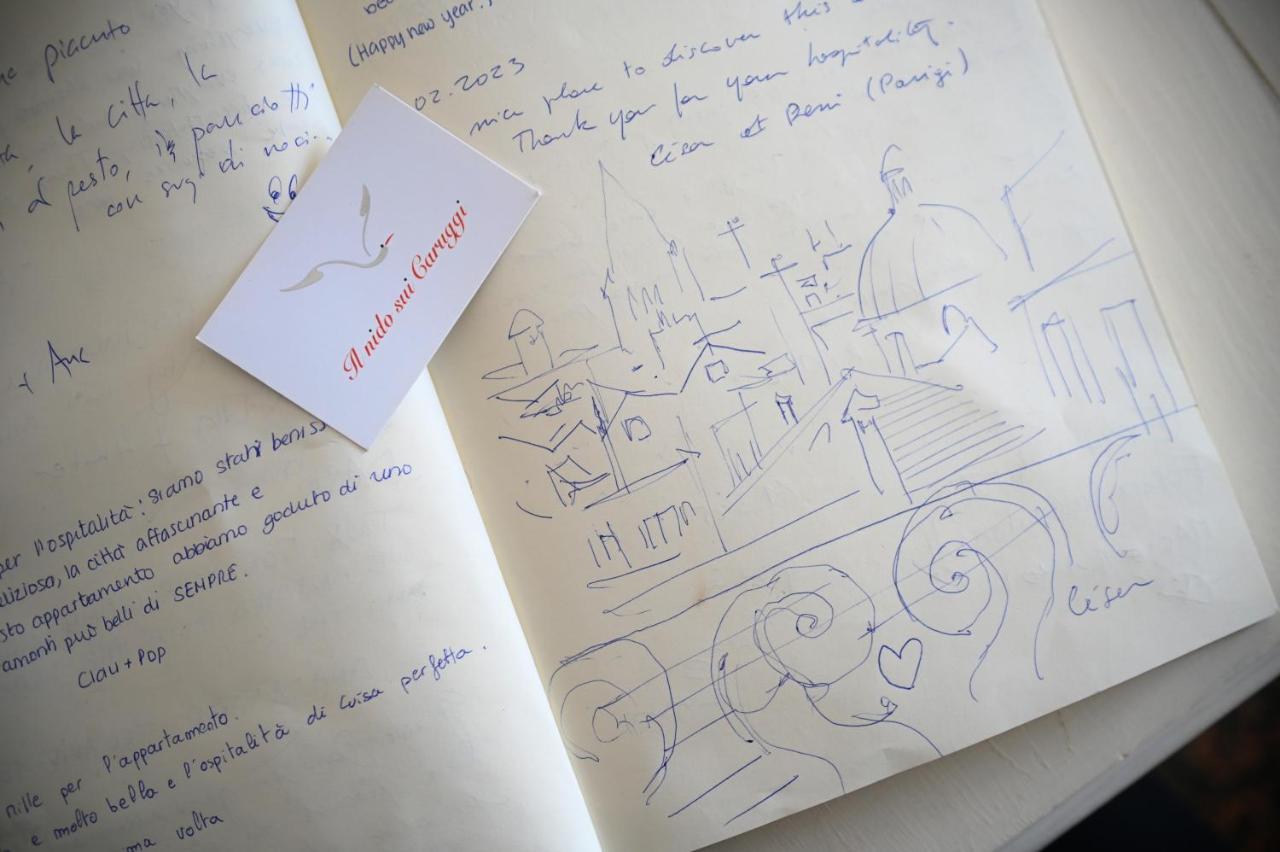 piacuto
la città, la
al pesto, i pansciotti
con sugo di noci...
+ Anc
per l'ospitalità: siamo stati beniss
elizioso, la città affascinante e
sto appartamento abbiamo goduto di uno
amonti più belli di SEMPRE.
Clau + Pop
mille per l'appartamento.
e molto bella e l'ospitalità di Luisa perfetta.
ma volta
Il nido sui Caruggi
(Happy new year.
02.2023
nice place to discover this
Thank you for your hospitality.
et (Parigi)